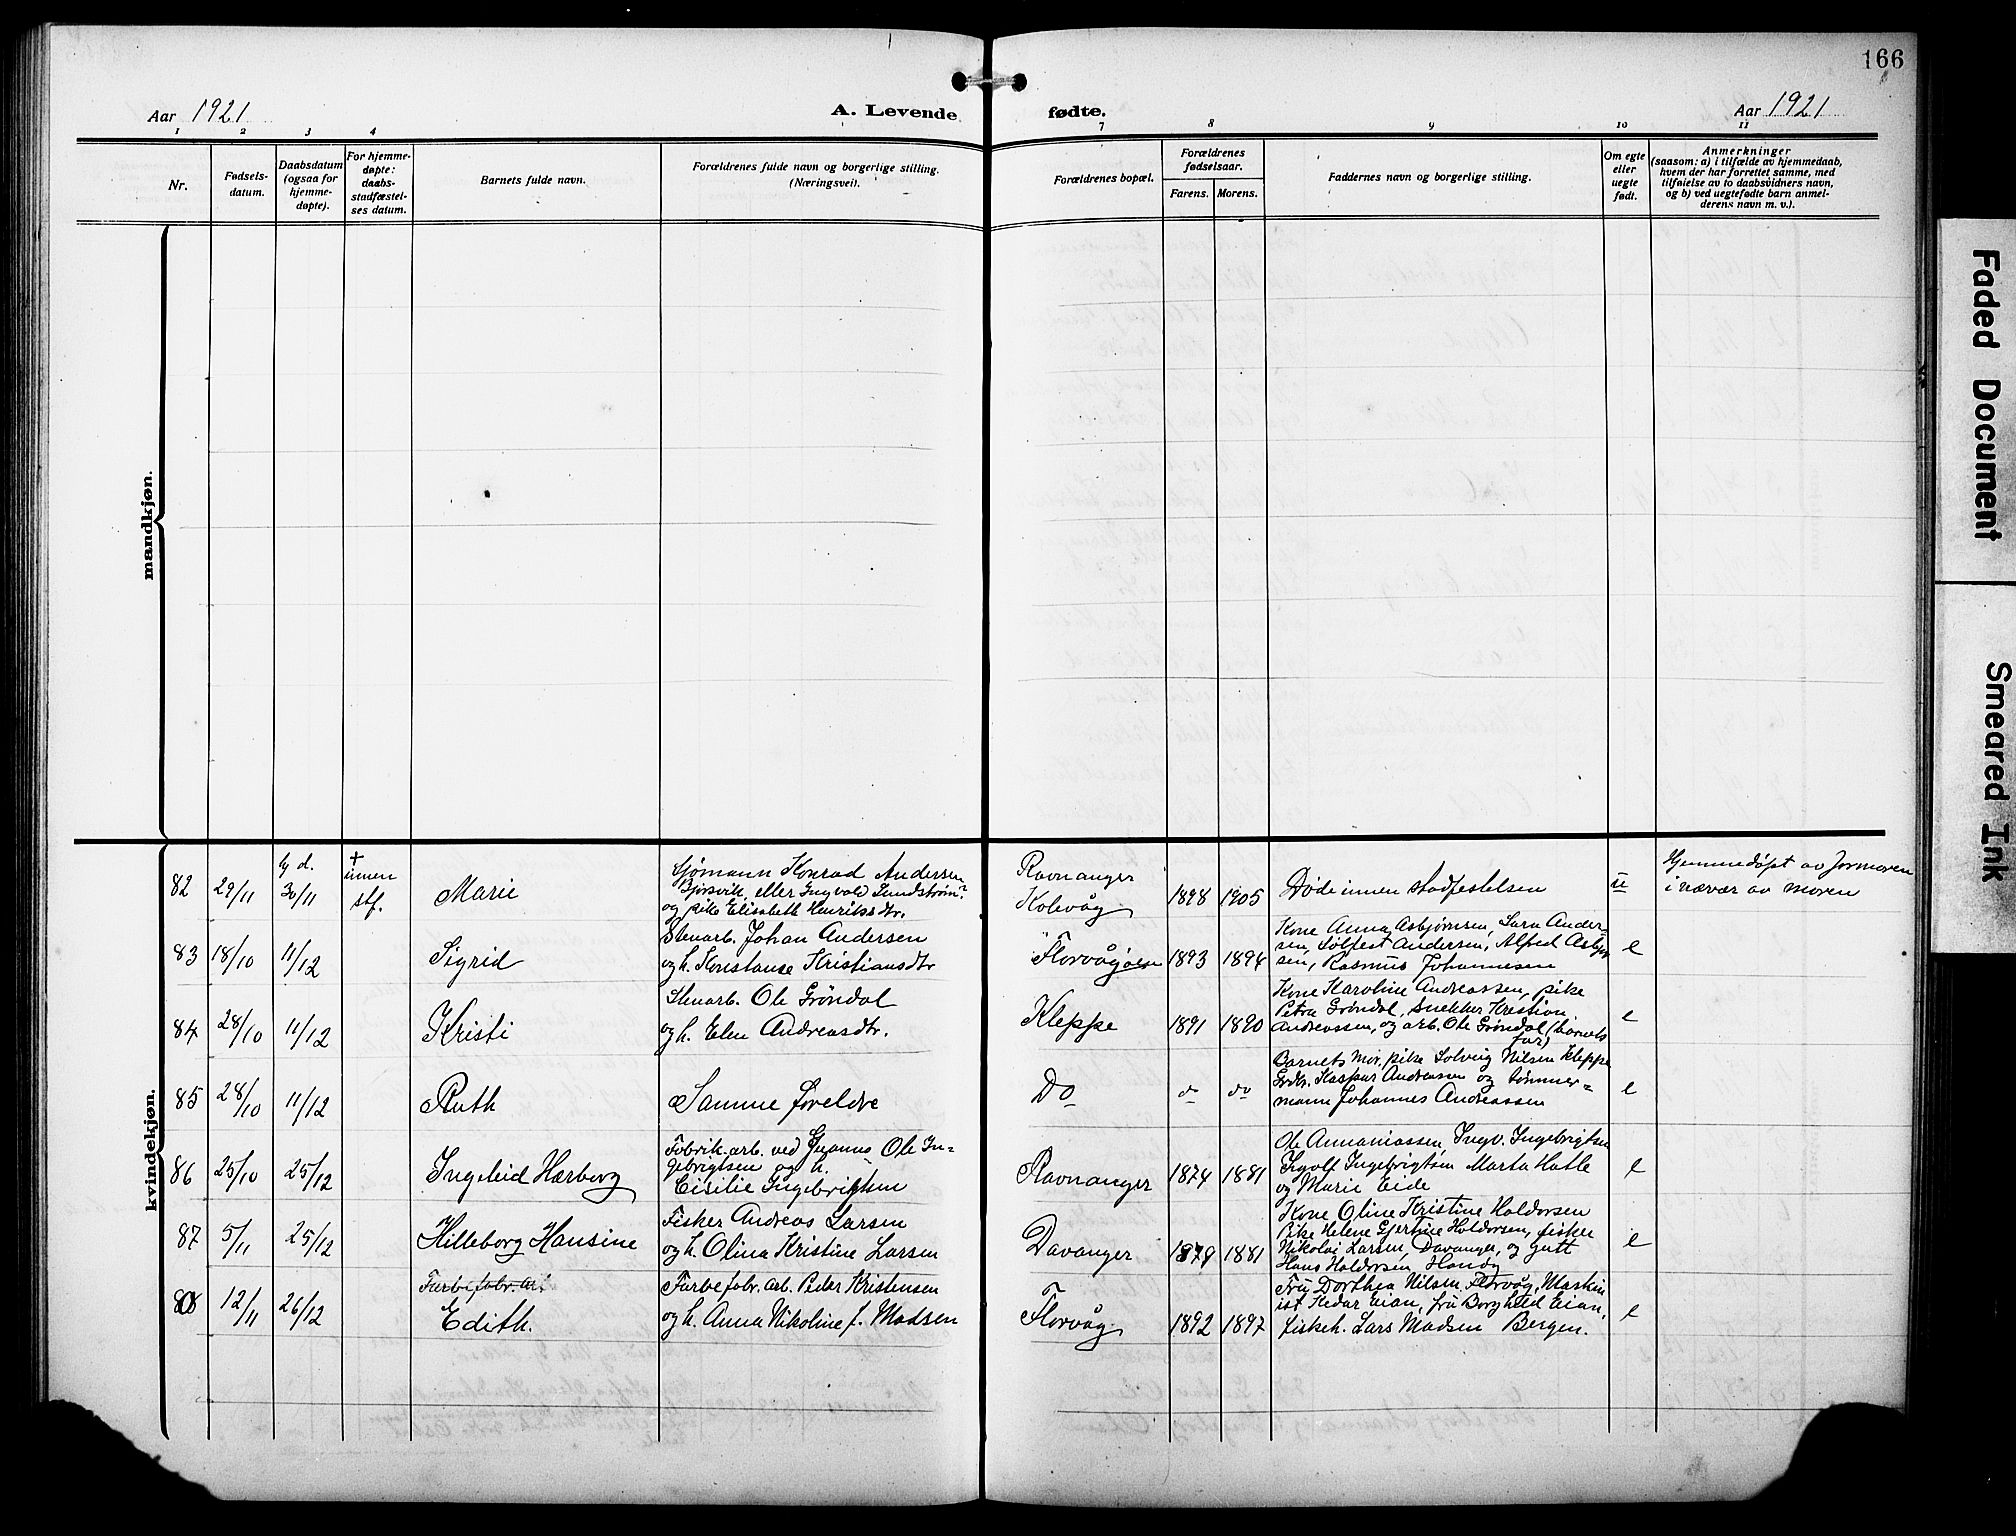 166
Aar 1921
A. Levende fødte.
Aar 1921
1 2 3 4 7 8 9 10 11
Nr.
Fødsels-
datum.
Daabsdatum
(ogsaa for
hjemme-
døpte).
For hjemme-
døpte:
daabs-
stadfæstel-
ses datum.
Barnets fulde navn.
Forældrenes fulde navn og borgerlige stilling.
(Næringsvei).
Forældrenes bopæl.
Forældrenes
fødselsaar.
Farens. Morens.
Faddernes navn og borgerlige stilling.
Om egte
eller
uegte
født.
Anmerkninger
(saasom: a) i tilfælde av hjemmedaab,
hvem der har forrettet samme, med
tilføielse av to daabsvidners navn,
og b) ved uegtefødte barn anmel-
derens navn m. v.).
mandkjøn.
kvindekjøn.
82 29/11 hj. d. 30/11 + innen stf. Marie
Sjømann Konrad Andersen
Bjørsvik eller Ingvald Lundstrøm?
og pike Elisabeth Henriksdtr.
Ravnanger
Kolevåg
1898 1905 Døde innen stadfestelsen
Hjemmedøpt av Jormoren
i nævær av moren
83 18/10 11/12 Sigrid
Stenarb. Johan Andersen
og h. Konstanse Kristiansdtr
Florvågøen 1893 1894
Kone Anna Asbjørnsen, Sara Ander-
sen, Sølfest Andersen, Alfred Asbjørn
sen, Rasmus Johannesen
e
84 28/10 11/12 Kristi
Stenarb. Ole Grøndal
og h. Elen Andreasdtr.
Kleppe 1891 1890
Kone Karoline Andreassen, pike
Petra Grøndal, snekker Kristian
Andreassen, og arb. Ole Grøndal (barnets
far)
e
85 28/10 11/12 Ruth
Samme foreldre
Do do do
Barnets mor, pike Solveig Nilsen Kleppe
Grdbr. Kaspar Andreassen og tømmer=
mann Johannes Andreassen
e
86 25/10 25/12 Ingeleid Hærborg
Fabrik-arb. ved Guanus Ole In-
gebrigtsen og h.
Cisilie Ingebrigtsen
Ravnanger 1874 1881
Ole Annaniassen Ingv. Ingebrigtsen
Ingolf Ingebrigtsen Marta Hatle
og Marie Eide
e
87 5/11 25/12 Hilleborg Hansine
Fisker Andreas Larsen
og h. Olina Kristine Larsen
Davanger 1879 1881
Kone Oline Kristine Haldorsen
Pike Helene Gjertine Haldorsen, fisker
Nikolai Larsen, Davanger, og gutt
Hans Haldorsen, Hanøy
e
88 12/11 26/12 Farbefabr. arb.
Edith.
Farbefabr. arb. Peder Kristensen
og h. Anna Nikoline f. Madsen
Florvåg 1892 1897
Fru Dorthea Nilsen, Florvåg, Maskin
ist Hedar Eian, fru Borghild Eian,
fiskeh. Lars Madsen Bergen.
e
Faded Document
Smeared Ink